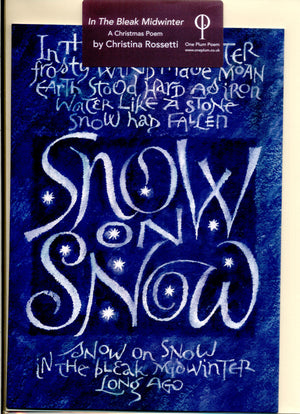 In The Bleak Midwinter
A Christmas Poem
by Christina Rossetti
One Plum Poem
www.oneplum.co.uk
In th TER
frosty wind made MOAN
EARTH STOOD HARD AS IRON
WATER LIKE A STONE
SNOW HAD FALLEN
SNOW
ON
SNOW
SNOW ON SNOW
IN THE BLEAK MIDWINTER
LONG AGO